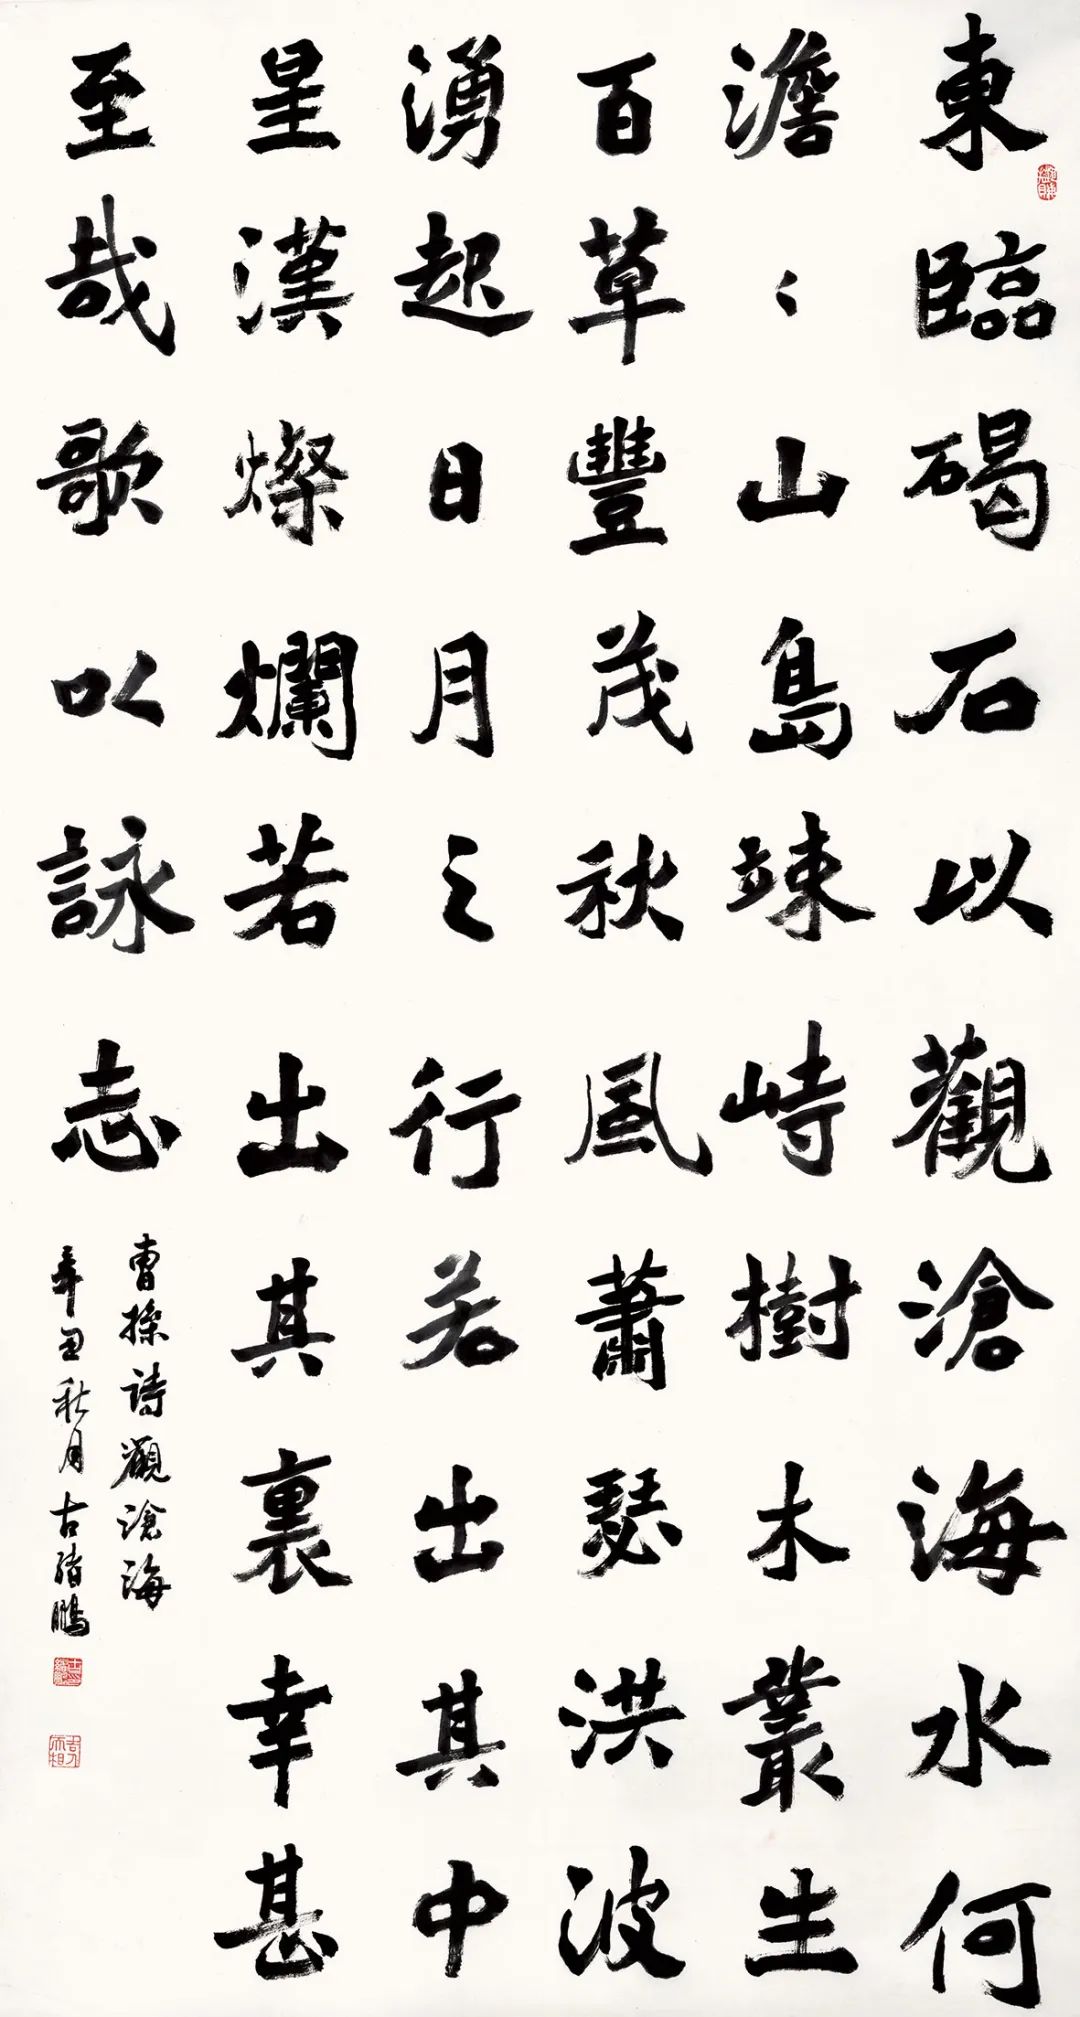 東臨碣石以觀滄海水何
澹〻山島竦峙樹木叢生
百草豐茂秋風蕭瑟洪波
湧起日月之行若出其中
星漢燦爛若出其裏幸甚
至哉歌以詠志
曹操詩觀滄海
辛丑秋月古緒鵬